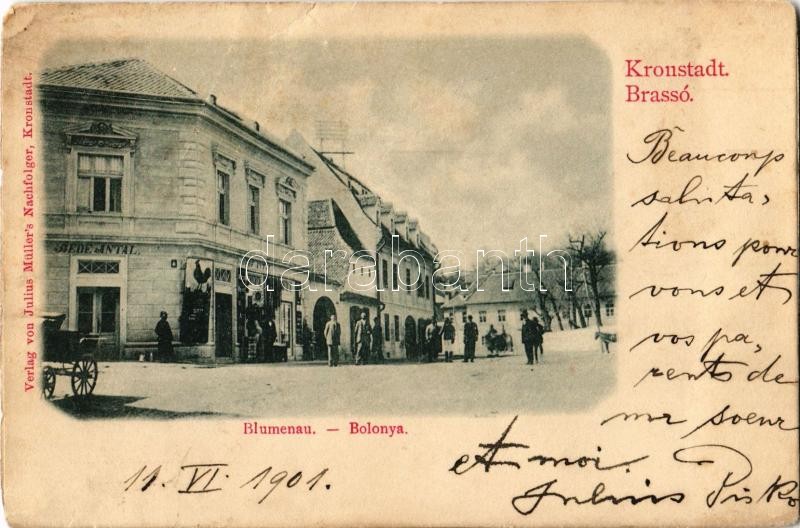 Kronstadt.
Brassó.
Verlag von Julius Müller's Nachfolger, Kronstadt.
BEDE ANTAL
darabanth
Blumenau. — Bolonya.
Beaucoup
saluta,
tions pour
vous et
vos pa,
rents de
ma soeur
et moi.
Julius Pisko
11. VI. 1901.